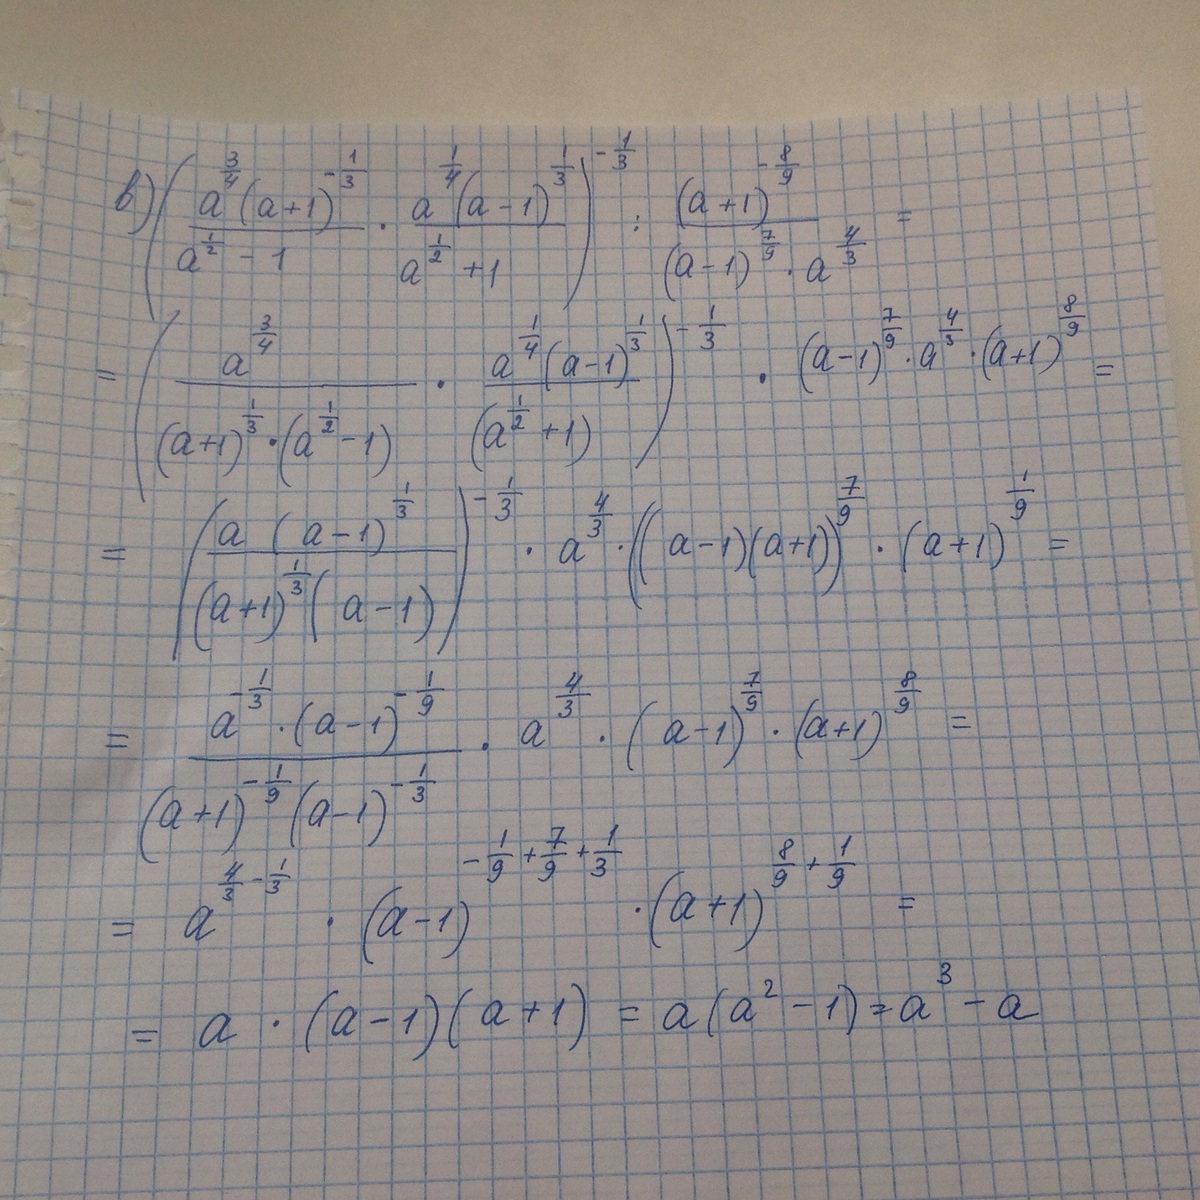 в) ( a^(3/4) (a+1)^(-1/3) / (a^(1/2) - 1) · a^(1/4) (a-1)^(1/3) / (a^(1/2) + 1) )^(-1/3) : (a+1)^(-8/9) / ((a-1)^(7/9) · a^(4/3)) =
= ( a^(3/4) / ((a+1)^(1/3) · (a^(1/2) - 1)) · a^(1/4) (a-1)^(1/3) / (a^(1/2) + 1) )^(-1/3) · (a-1)^(7/9) · a^(4/3) · (a+1)^(8/9) =
= ( a (a-1)^(1/3) / ((a+1)^(1/3) (a-1)) )^(-1/3) · a^(4/3) · ((a-1)(a+1))^(7/9) · (a+1)^(1/9) =
= a^(-1/3) · (a-1)^(-1/9) / ((a+1)^(-1/9) (a-1)^(-1/3)) · a^(4/3) · (a-1)^(7/9) · (a+1)^(8/9) =
= a^(4/3 - 1/3) · (a-1)^(-1/9 + 7/9 + 1/3) · (a+1)^(8/9 + 1/9) =
= a · (a-1)(a+1) = a(a² - 1) = a³ - a